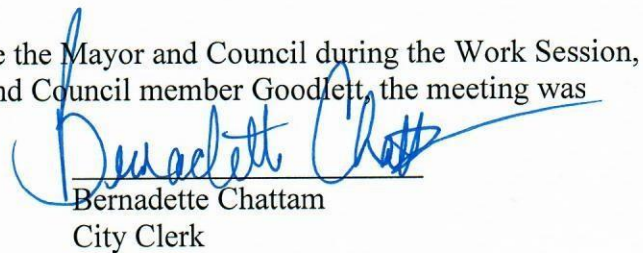 e the Mayor and Council during the Work Session,
nd Council member Goodlett, the meeting was
Bernadette Chatt
Bernadette Chattam
City Clerk